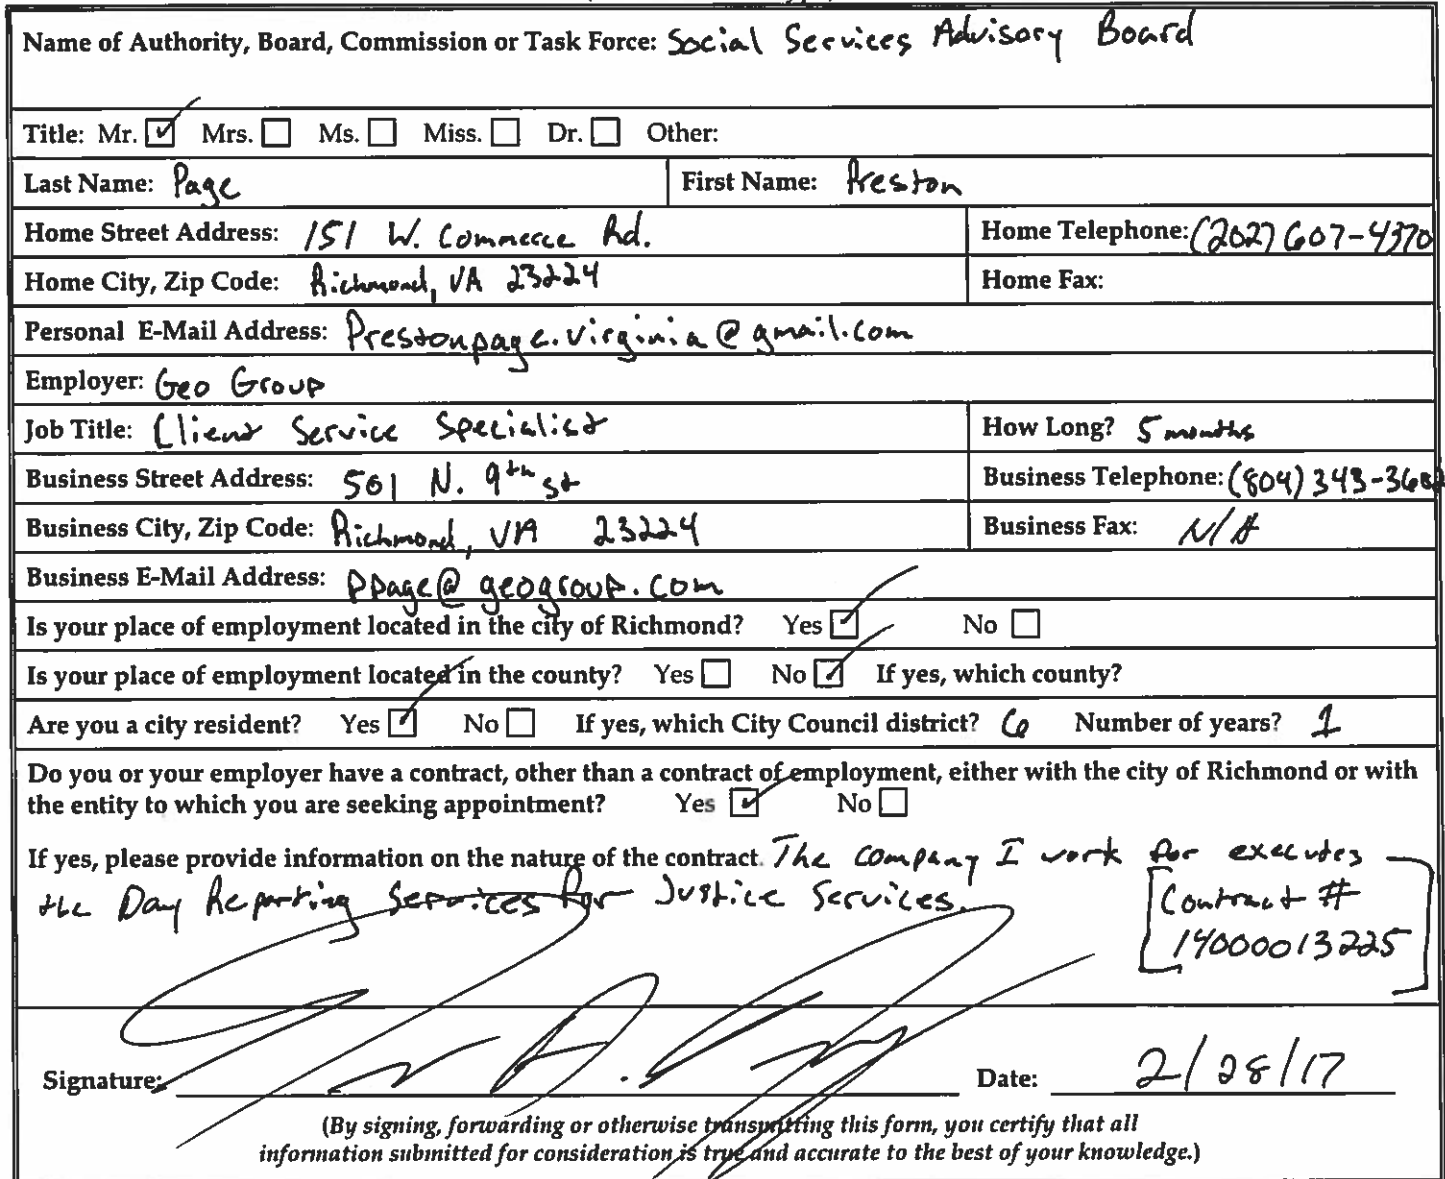 Name of Authority, Board, Commission or Task Force: Social Services Advisory Board
Title: Mr. ☑ Mrs. ☐ Ms. ☐ Miss. ☐ Dr. ☐ Other:
Last Name: Page First Name: Preston
Home Street Address: 151 W. Commerce Rd. Home Telephone: (202) 607-4370
Home City, Zip Code: Richmond, VA 23224 Home Fax:
Personal E-Mail Address: Prestonpage.virginia@gmail.com
Employer: Geo Group
Job Title: Client Service Specialist How Long? 5 months
Business Street Address: 501 N. 9th st Business Telephone: (804) 343-
Business City, Zip Code: Richmond, VA 23224 Business Fax: N/A
Business E-Mail Address: ppage@geogroup.com
Is your place of employment located in the city of Richmond? Yes ☑ No ☐
Is your place of employment located in the county? Yes ☐ No ☑ If yes, which county?
Are you a city resident? Yes ☑ No ☐ If yes, which City Council district? 6 Number of years? 1
Do you or your employer have a contract, other than a contract of employment, either with the city of Richmond or with
the entity to which you are seeking appointment? Yes ☑ No ☐
If yes, please provide information on the nature of the contract. The company I work for executes
the Day Reporting Services for Justice Services. [Contract #
14000013225]
Signature: Date: 2/28/17
(By signing, forwarding or otherwise transmitting this form, you certify that all
information submitted for consideration is true and accurate to the best of your knowledge.)